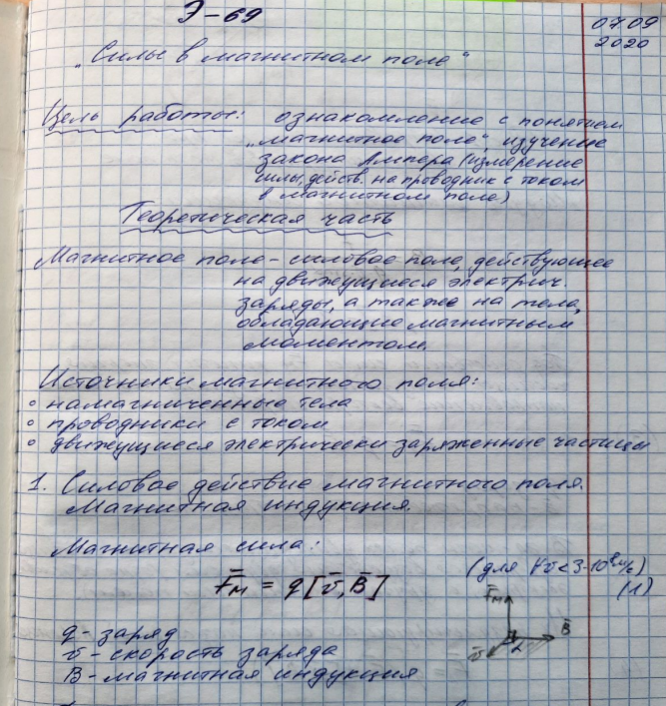 Э-69
07.09
2020
„Силы в магнитном поле“
Цель работы: ознакомление с понятием
„магнитное поле“, изучение
закона Ампера (измерение
силы, действ. на проводник с током
в магнитном поле)
Теоретическая часть
Магнитное поле - силовое поле, действующее
на движущиеся электрич.
заряды, а также на тела,
обладающие магнитным
моментом.
Источники магнитного поля:
◦ намагниченные тела
◦ проводники с током
◦ движущиеся электрически заряженные частицы
1. Силовое действие магнитного поля.
Магнитная индукция.
Магнитная сила:
(для ∀v<3·10⁸м/с)
F̄м = q[v̄, B̄]
(1)
F̄м
B̄
v̄
α
q - заряд
v - скорость заряда
B - магнитная индукция